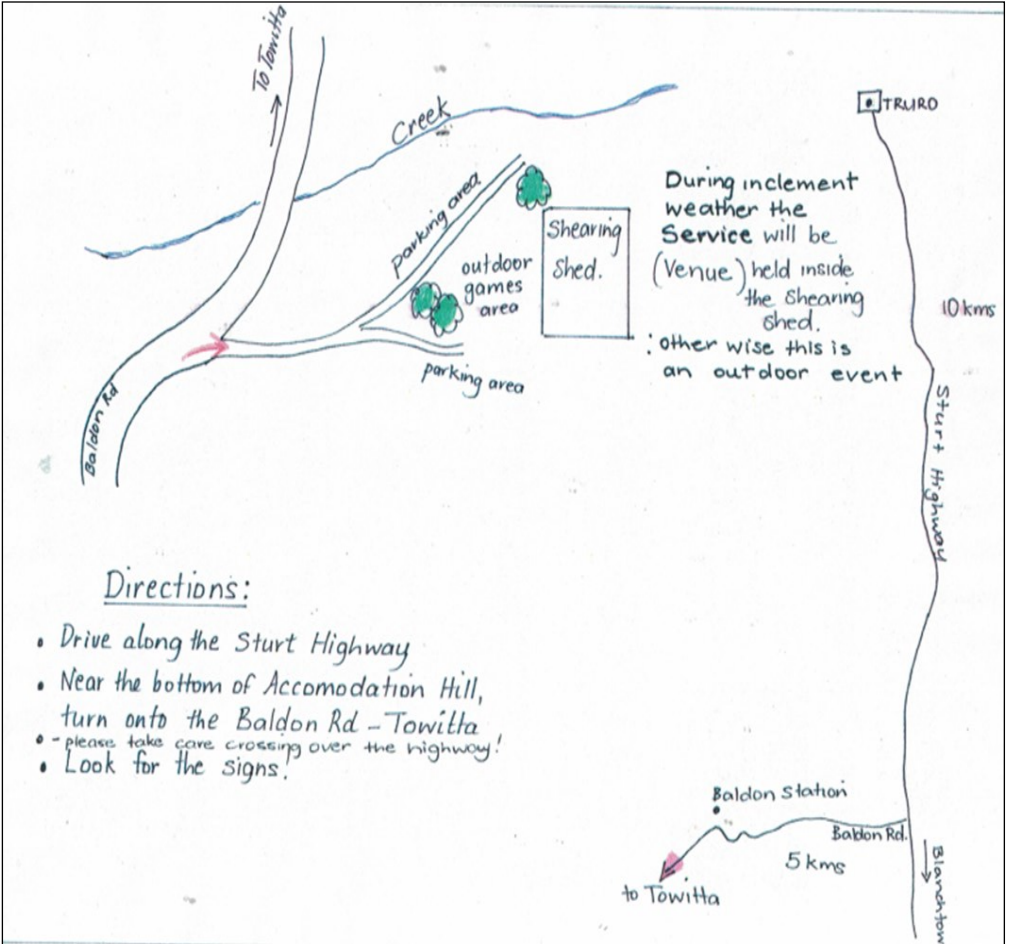 To Towitta
Creek
TRURO
parking area
Shearing
Shed.
outdoor
games
area
parking area
Baldon Rd
During inclement
weather the
Service will be
(Venue) held inside
the Shearing
shed.
: other wise this is
an outdoor event
10 kms
Sturt Highway
Directions:
• Drive along the Sturt Highway
• Near the bottom of Accomodation Hill,
turn onto the Baldon Rd - Towitta
• - please take care crossing over the highway!
• Look for the signs!
Baldon Station
Baldon Rd.
5 kms
to Towitta
Blanchtown